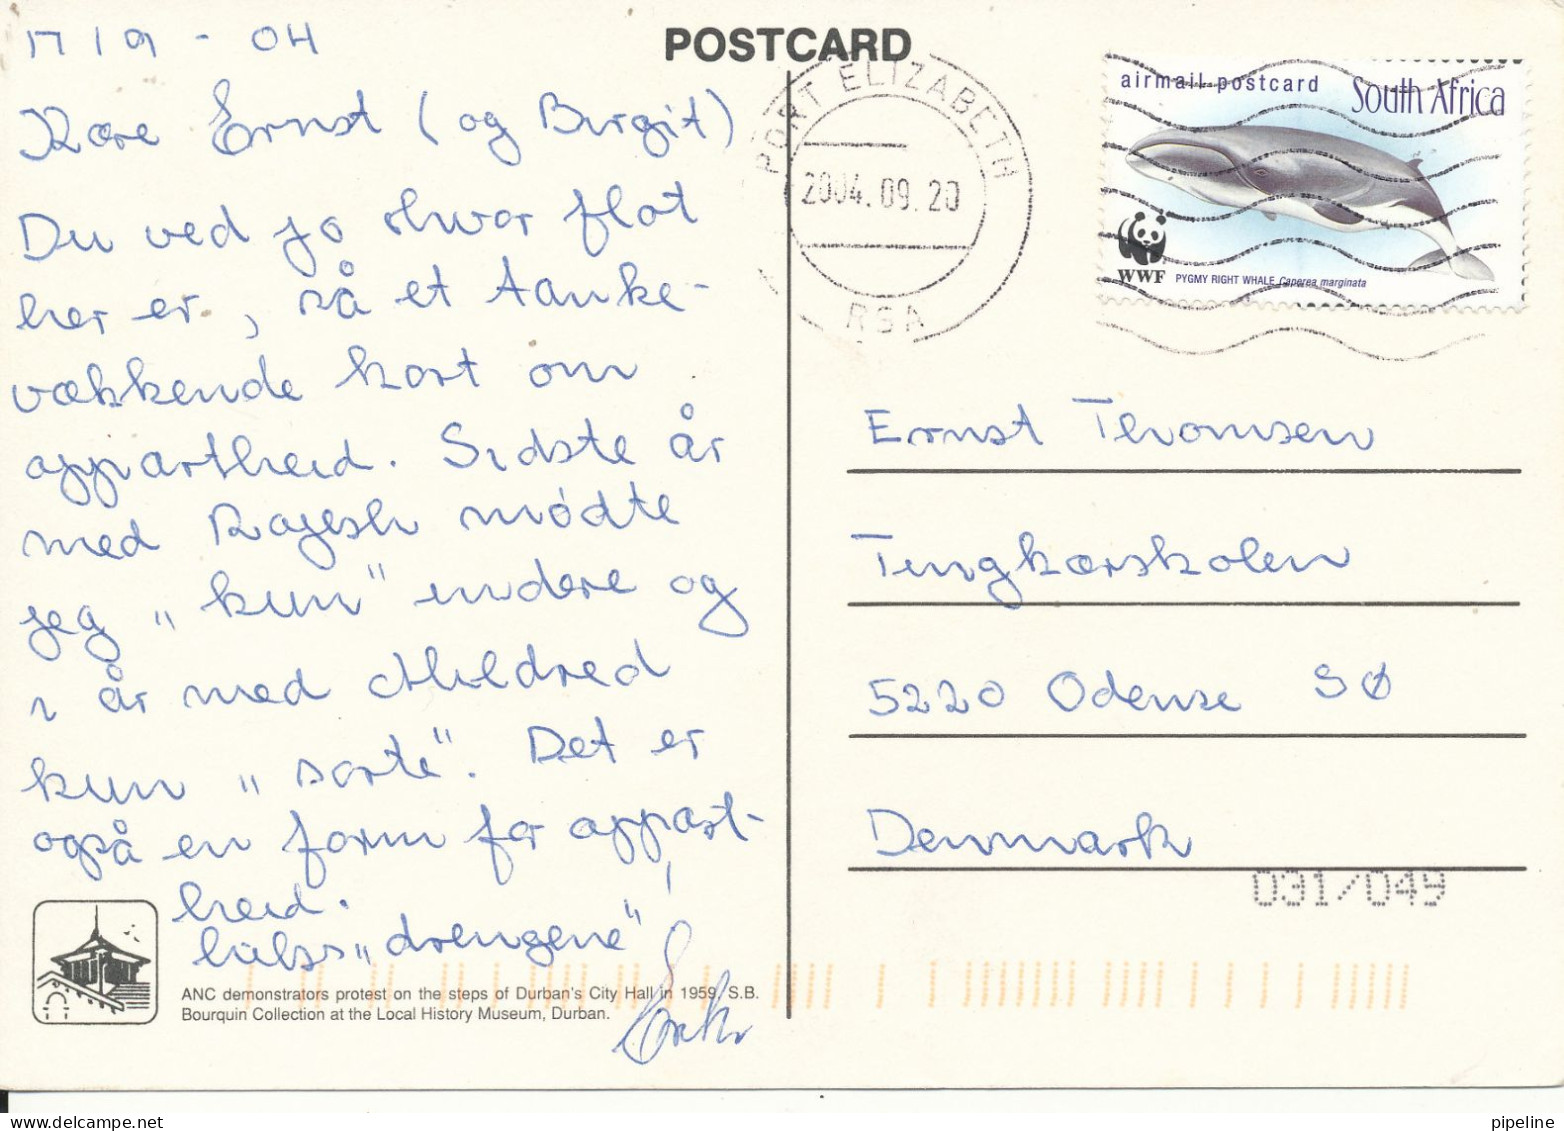 17/9 - 04
POSTCARD
Kære Ernst (og Birgit)
Du ved jo hvor flot
her er, så et tanke-
vækkende kort om
appartheid. Sidste år
med Rajesh mødte
jeg „kun" indere og
i år med Mildred
kun „sorte". Det er
også en form for appart-
heid.
hils „drengene"!
ANC demonstrators protest on the steps of Durban's City Hall in 1959. S.B.
Bourquin Collection at the Local History Museum, Durban.
PORT ELIZABETH
2004.09.20
RSA
airmail postcard South Africa
WWF PYGMY RIGHT WHALE Caperea marginata
Ernst Thomsen
Tingkærskolen
5220 Odense SØ
Denmark
031/049
pipeline